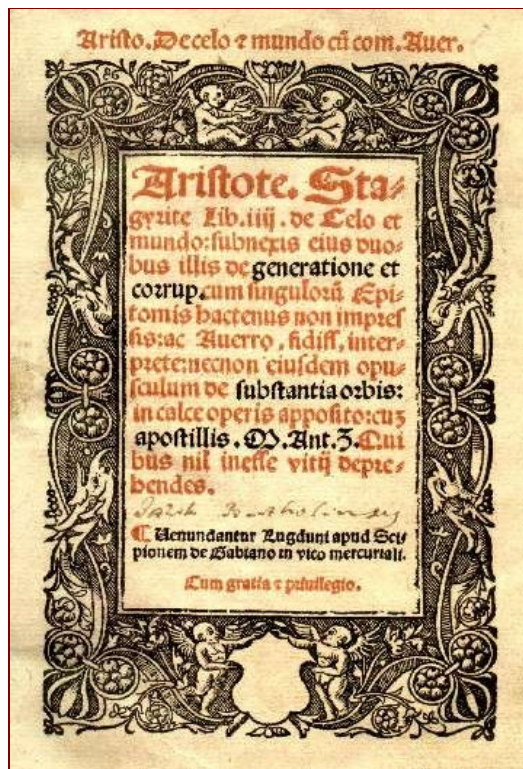 Aristo. De celo ⁊ mundo cū com. Auer.
Aristote. Sta⸗
gyrite Lib. iiij. de Celo et
mundo: subnexis eius duo⸗
bus illis de generatione et
corrup. cum singulorū Epi⸗
tomis hactenus non impres
sis: ac Auerro. fidiss. inter⸗
prete: necnon eiusdem opu⸗
sculum de substantia orbis:
in calce operis apposito: cuȝ
apostillis. M. Ant. Z. Qui
bus nil inesse vitij depre⸗
hendes.
¶ Uenundantur Lugduni apud Sci⸗
pionem de Gabiano in vico mercuriali.
Cum gratia ⁊ priuilegio.